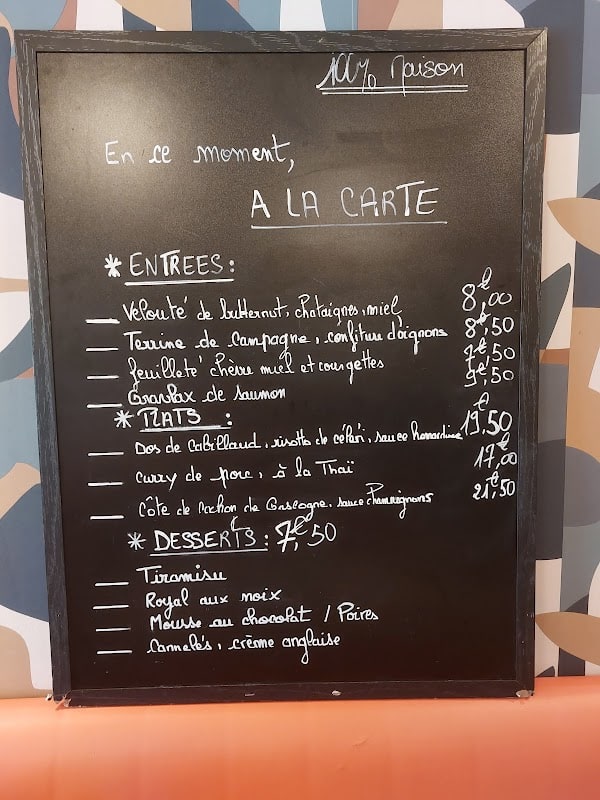 100% Maison
En ce moment,
A LA CARTE
* ENTREES :
— Velouté de butternut, chataignes, miel 8€,00
— Terrine de Campagne, confiture d'oignons 8€,50
— feuilleté chèvre miel et courgettes 9€,50
— Gravlax de saumon 9€,50
* PLATS :
— Dos de cabillaud, risotto de céleri, sauce homardine 19€,50
— Curry de porc, à la Thaï 17€,00
— Côte de cochon de Gascogne, sauce champignons 21€,50
* DESSERTS : 7€,50
— Tiramisu
— Royal aux noix
— Mousse au chocolat / Poires
— Cannelés, crème anglaise